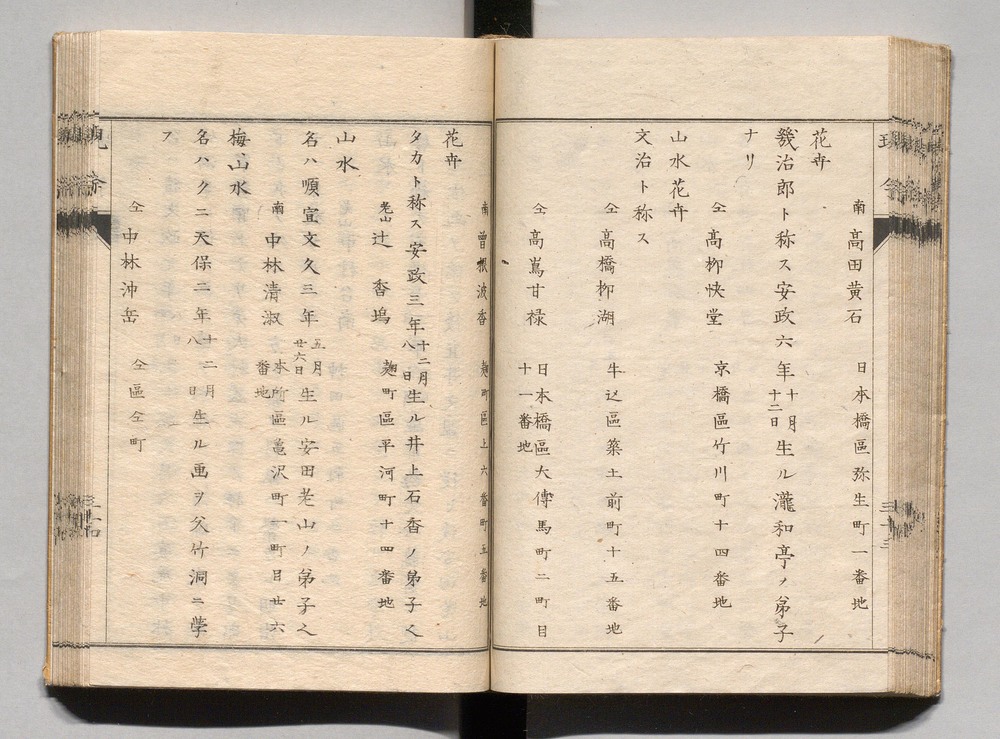 南 高田黄石 日本橋區弥生町一番地
花卉
幾治郎ト称ス安政六年十月十二日生ル瀧和亭ノ弟子
ナリ
仝 高柳快堂 京橋區竹川町十四番地
山水花卉
仝 高橋柳湖 牛込區築土前町十五番地
文治ト称ス
仝 高嶌甘禄 日本橋區大傳馬町二町目十一番地
南 曽根波香 麹町區上六番町五番地
花卉
タカト称ス安政三年十二月八日生ル井上石香ノ弟子
老山 辻香塢 麹町區平河町十四番地
山水
名ハ順宜文久三年五月廿六日生ル安田老山ノ弟子
南 中林清淑 本所區亀沢町一町目廿六番地
梅山水
名ハクニ天保二年十二月八日生ル画ヲ父竹洞ニ學
ス
仝 中林沖岳 仝區仝町